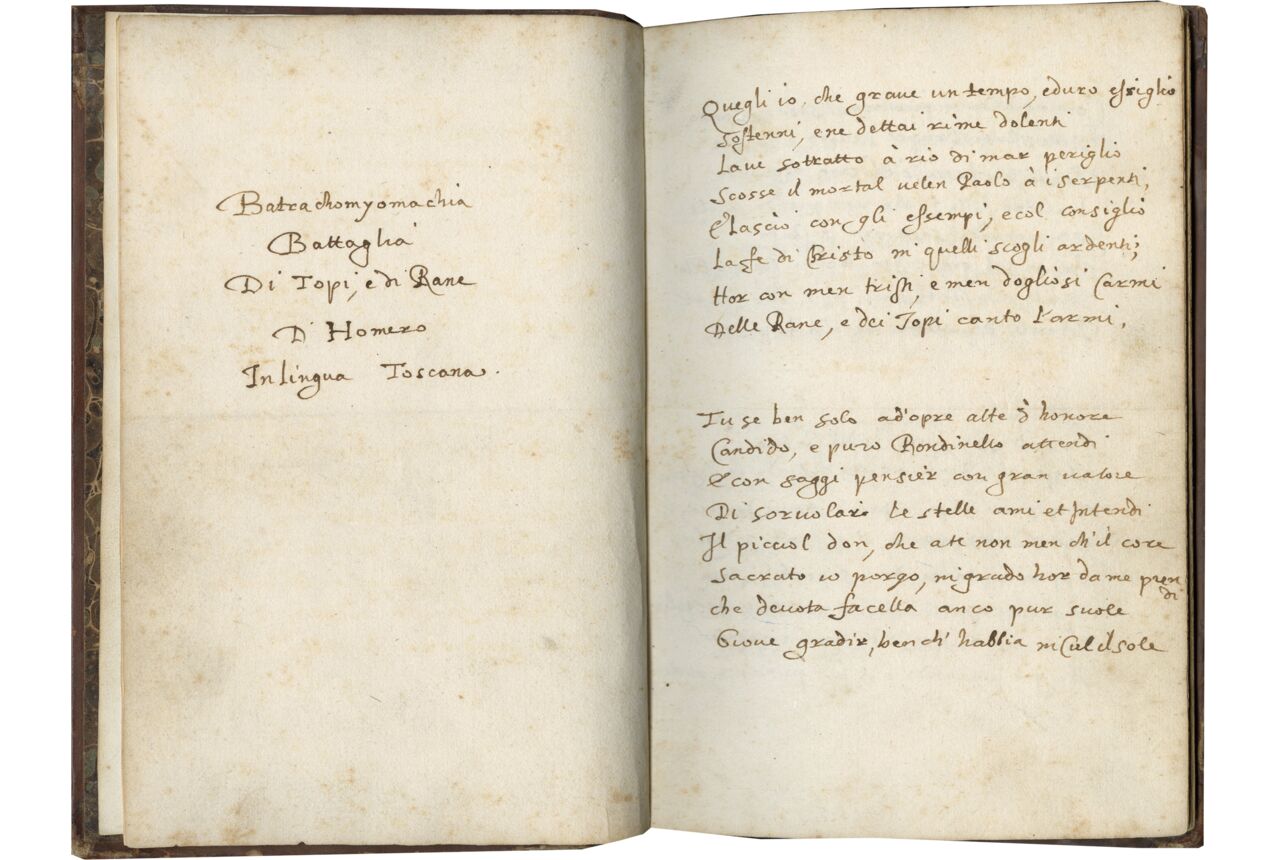 Batrachomyomachia
Battaglia
Di Topi, e di Rane
D' Homero
In lingua Toscana.
Quegli io, che graue un tempo, e duro essiglio
Sostenni, e ne dettai rime dolenti
Laue sottratto à rio di mar periglio
Scosse il mortal uelen Paolo à i serpenti,
E lasciò con gli essempi, e col consiglio
La fe di Christo in quelli scogli ardenti;
Hor con men tristi, e men dogliosi Carmi
Delle Rane, e dei Topi canto l'armi,
Tu se ben solo ad'opre alte d' honore
Candido, e puro Rondinello attendi
E con saggi pensier con gran ualore
Di soruolar le stelle ami et Intendi
Il picciol don, che a te non men ch'il core
Sacrato io porgo, in grado hor da me prendi
che deuota facella anco pur suole
Gioue gradir, ben ch' habbia in Ciel il sole